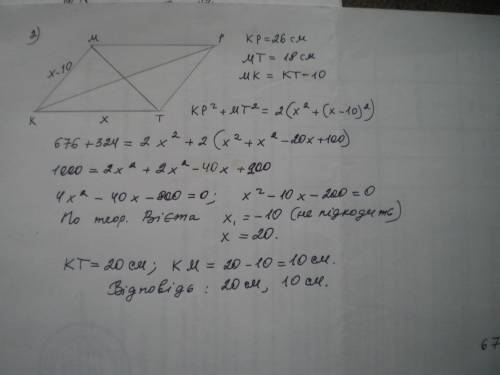 2)
M P
x-10
K x T
KP=26 см
MT=18 см
MK=KT-10
KP²+MT²=2(x²+(x-10)²)
676+324=2x²+2(x²+x²-20x+100)
1000=2x²+2x²-40x+200
4x²-40x-800=0; x²-10x-200=0
По теор. Вієта x₁=-10 (не підходить)
x=20.
KT=20 см; KM=20-10=10 см.
Відповідь: 20 см, 10 см.
67